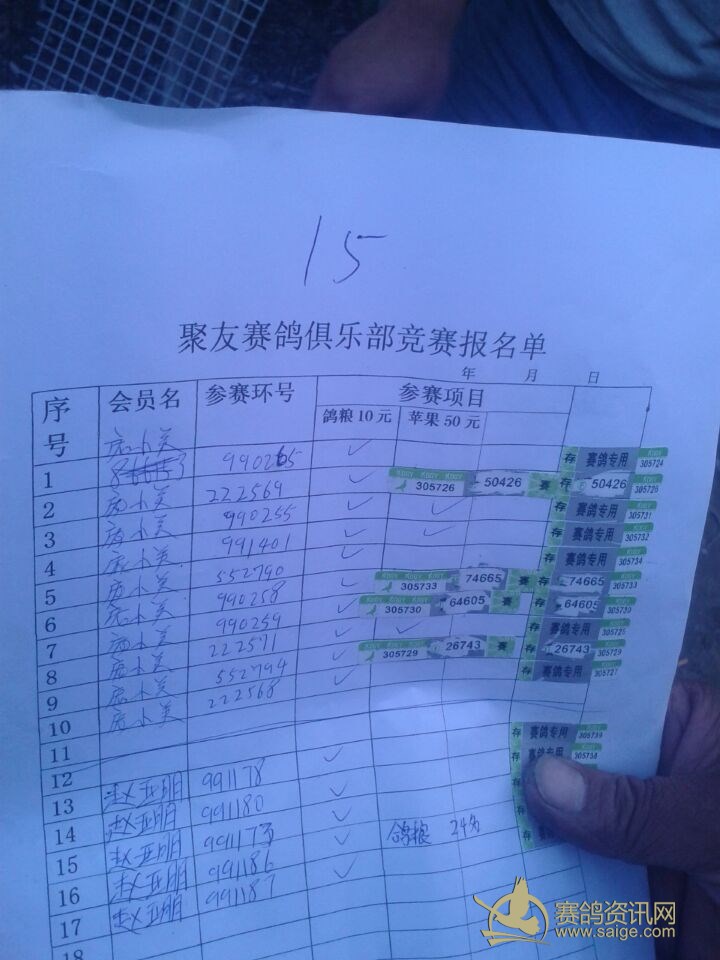 15
聚友赛鸽俱乐部竞赛报名单
年 月 日
序号 会员名 参赛环号 参赛项目
鸽粮10元 苹果50元
1 990265 ✓ 存 赛鸽专用 305724
2 222569 305726 50426 赛 存 50426 305726
3 990255 ✓ ✓ 存 赛鸽专用 305731
4 991401 ✓ ✓ 存 赛鸽专用 305732
5 552790 ✓ 存 赛鸽专用 305734
6 990258 ✓ 305733 74665 赛 存 74665 305733
7 990259 ✓ 305730 64605 赛 存 64605 305730
8 222571 ✓ ✓ 存 赛鸽专用
9 552794 ✓ 305729 26743 赛 存 26743 305729
10 222568 ✓ 存 赛鸽专用 305727
11
12 存 赛鸽专用
13 赵亚明 991178 ✓ 存 赛鸽专用 305738
14 赵亚明 991180 ✓
15 赵亚明 991173 ✓ 鸽粮 24名
16 赵亚明 991186 ✓
17 赵亚明 991187
18
赛鸽资讯网
www.saige.com